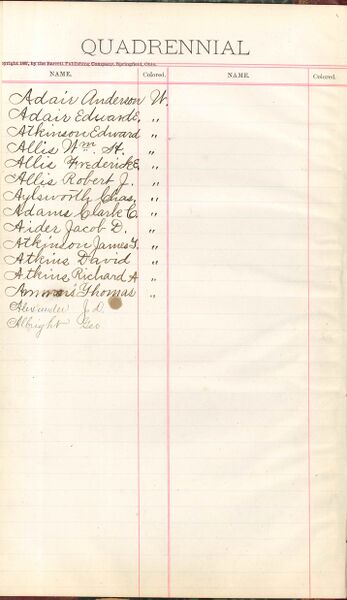 QUADRENNIAL
opyright 1887, by the Barrett Publishing Company, Springfield, Ohio.
NAME. Colored. NAME. Colored.
Adair Anderson W.
Adair Edward E. "
Atkinson Edward "
Allis Wm. H. "
Allis Frederick E. "
Allis Robert J. "
Aylsworth Chas. "
Adams Clark C. "
Aider Jacob D. "
Atkinson James T. "
Atkins David "
Atkins Richard A "
Ammons Thomas "
Alexander J. D.
Albright Geo